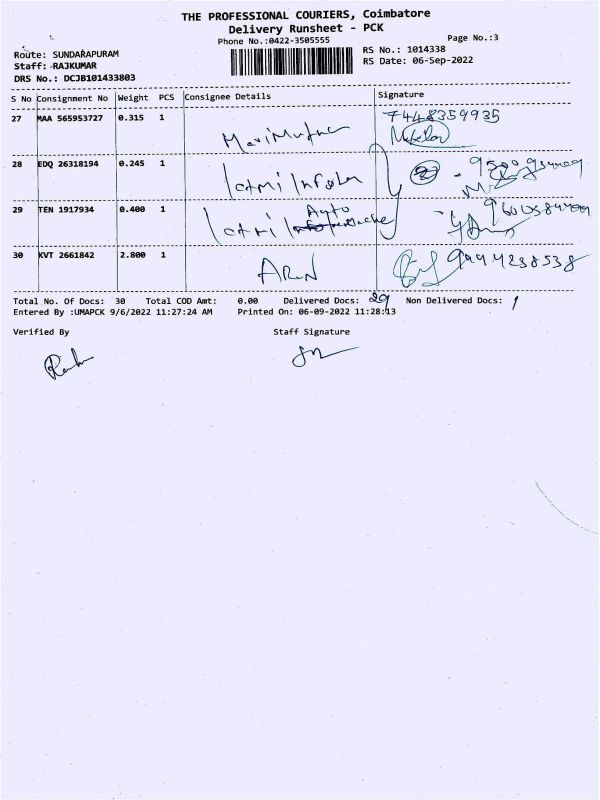 THE PROFESSIONAL COURIERS, Coimbatore
Delivery Runsheet - PCK
Phone No.:0422-3505555
Page No.:3
Route: SUNDARAPURAM
RS No.: 1014338
Staff: RAJKUMAR
RS Date: 06-Sep-2022
DRS No.: DCJB101433803
S No Consignment No Weight PCS Consignee Details Signature
27 MAA 565953727 0.315 1 7448359935
28 EDQ 26318194 0.245 1
29 TEN 1917934 0.400 1 Auto
30 KVT 2661842 2.800 1 ARUN 9994238538
Total No. Of Docs: 30 Total COD Amt: 0.00 Delivered Docs: 29 Non Delivered Docs: 1
Entered By :UMAPCK 9/6/2022 11:27:24 AM Printed On: 06-09-2022 11:28:13
Verified By Staff Signature